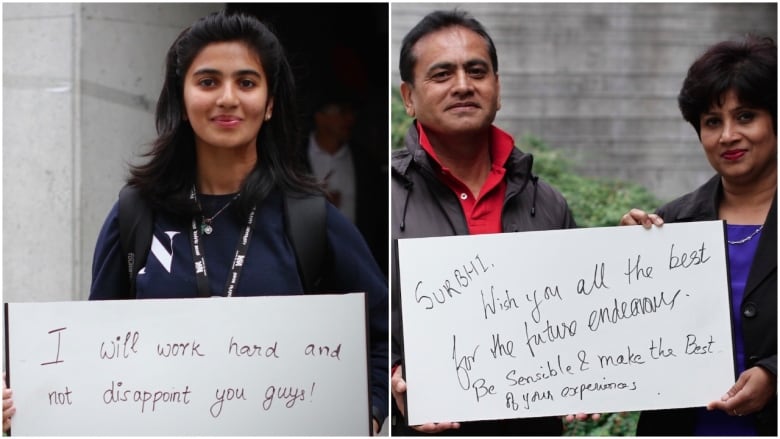 I will work hard and
not disappoint you guys!
SURBHI.
Wish you all the best
for the future endeavours.
Be Sensible & make the Best
of your experiences.